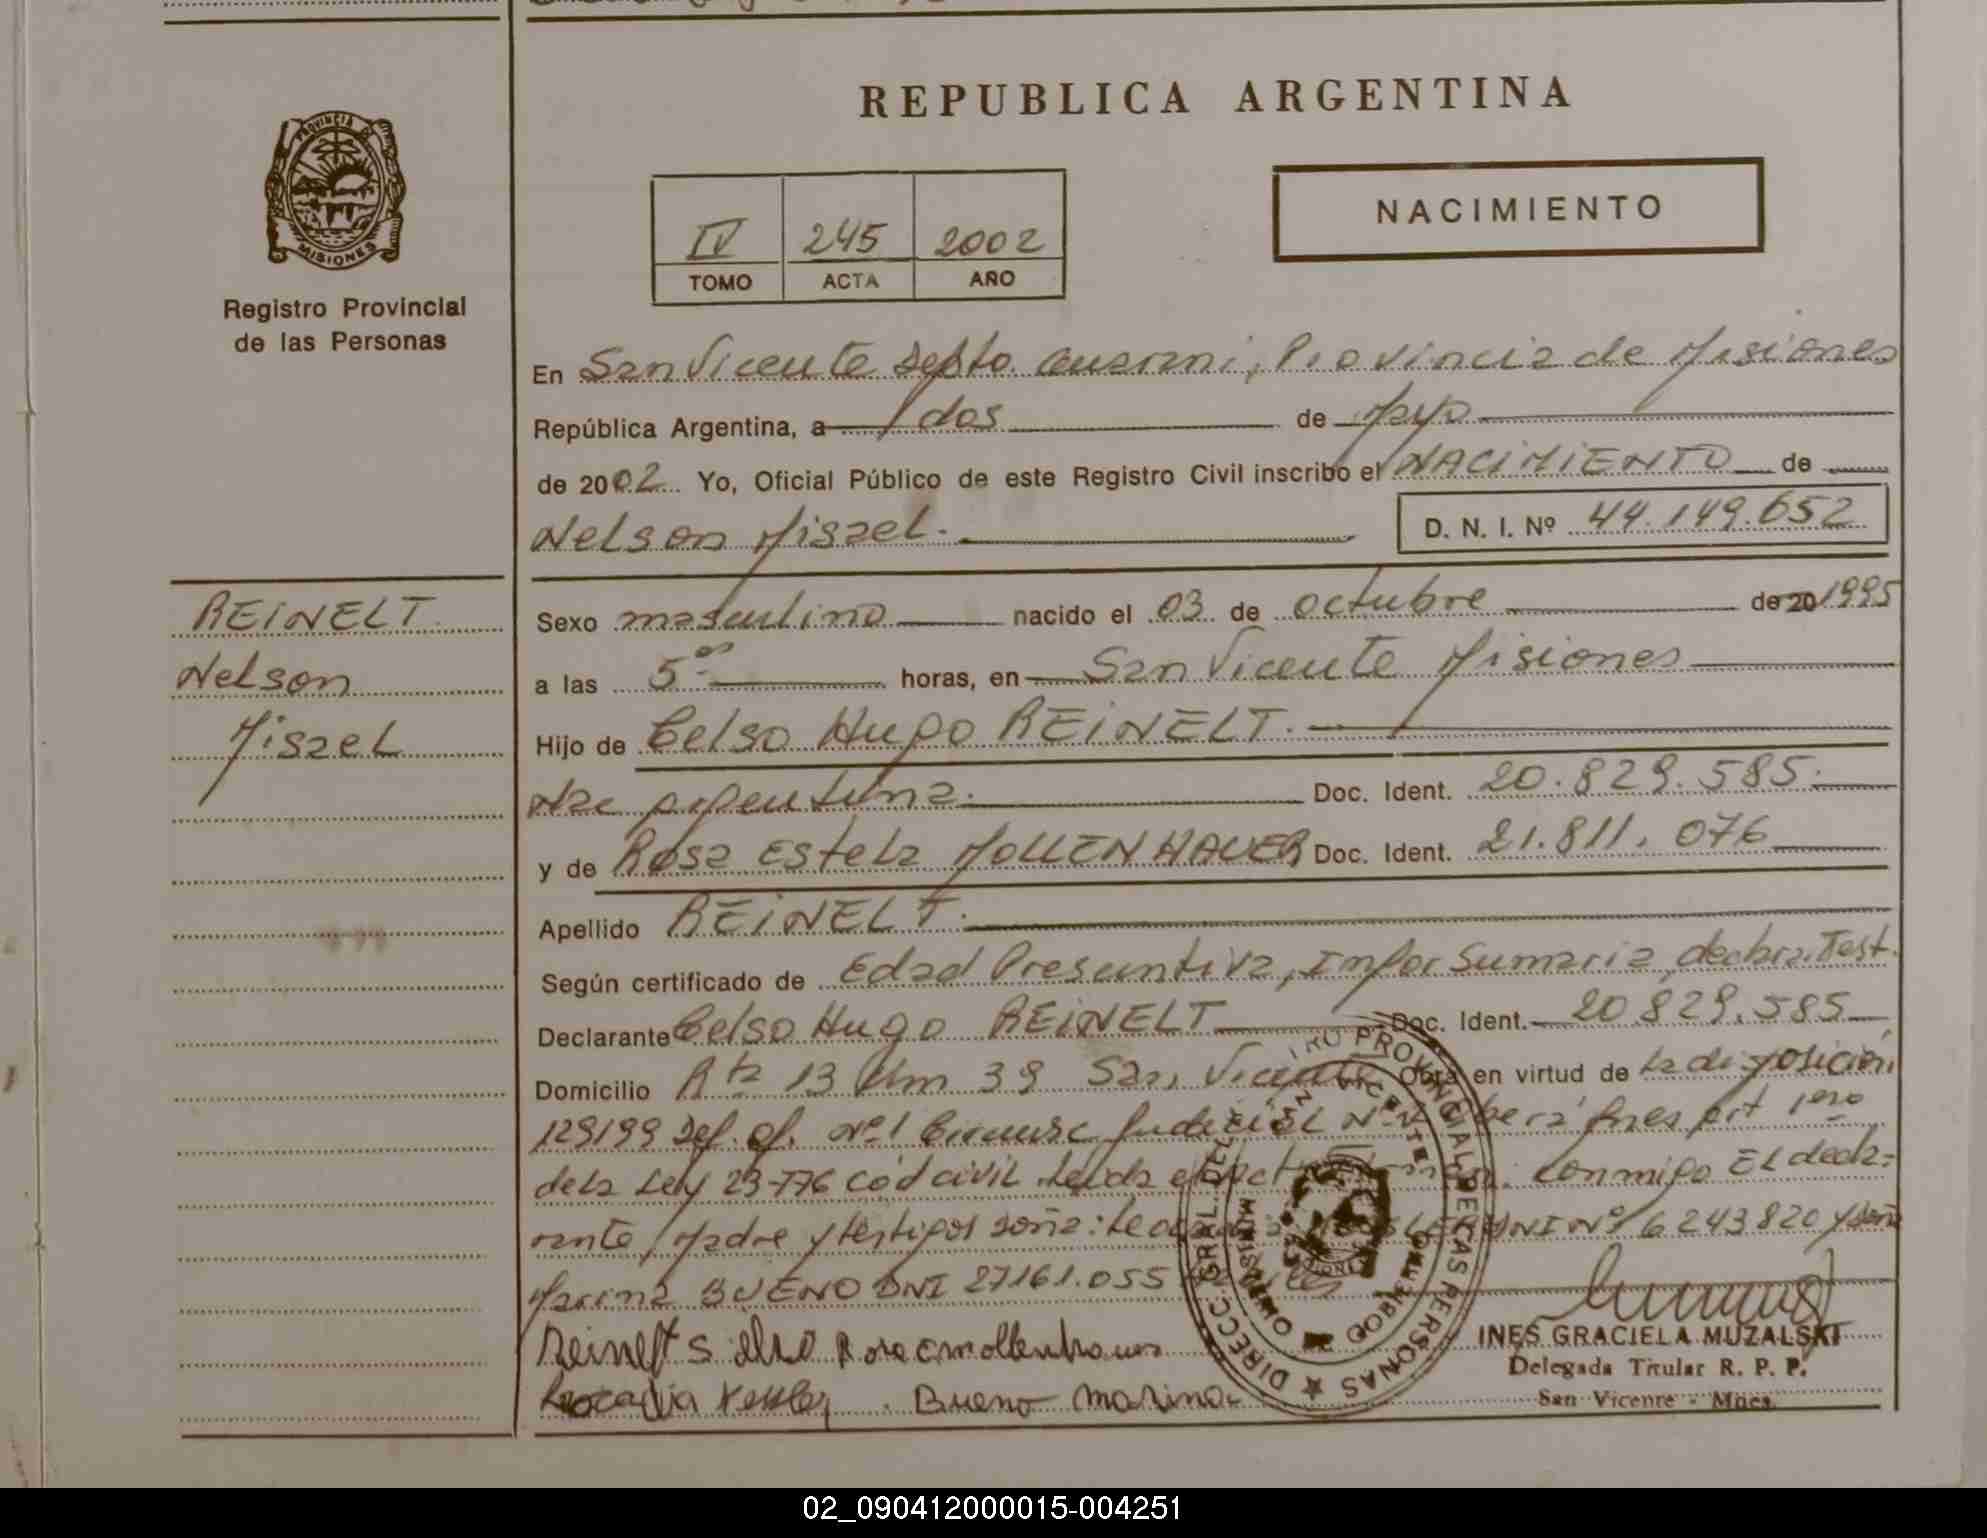 REPUBLICA ARGENTINA
PROVINCIA DE
MISIONES
Registro Provincial
de las Personas
NACIMIENTO
IV 245 2002
TOMO ACTA AÑO
En San Vicente Depto. Guarani, Provincia de Misiones
República Argentina, a dos de Mayo
de 2002 Yo, Oficial Público de este Registro Civil inscribo el NACIMIENTO de
Nelson Misael.
D. N. I. Nº 44.149.652
REINELT
Nelson
Misael
Sexo masculino nacido el 03 de octubre de 20 1995
a las 5 horas, en San Vicente Misiones
Hijo de Celso Hugo REINELT.
Nac argentina. Doc. Ident. 20.829.585.
y de Rosa Estela MOLLENHAUER Doc. Ident. 21.811.076
Apellido REINELT.
Según certificado de Edad Presuntiva, Infor Sumaria, declara. Test.
Declarante Celso Hugo REINELT Doc. Ident. 20.829.585
Domicilio Rta 13 Km 39 San Vicente Obra en virtud de la disposición
129199 Def. of. Nº1 Circunsc Judicial Nº Obera fnes art 1ero
de la Ley 23-776 cód civil. Leida el acta conmigo El decla-
rante, Madre y testigos doña: DNI Nº 6243820 y doña
Marina BUENO DNI 27161.055
Reinelt Rosa e mollenhauer
Leocadia Kessler. Bueno Marina
DIRECC. GRAL. DEL REGISTRO PROVINCIAL DE LAS PERSONAS
SAN VICENTE
MINISTERIO DE GOBIERNO
INES GRACIELA MUZALSKI
Delegada Titular R. P. P.
San Vicente - Mnes.
02_090412000015-004251